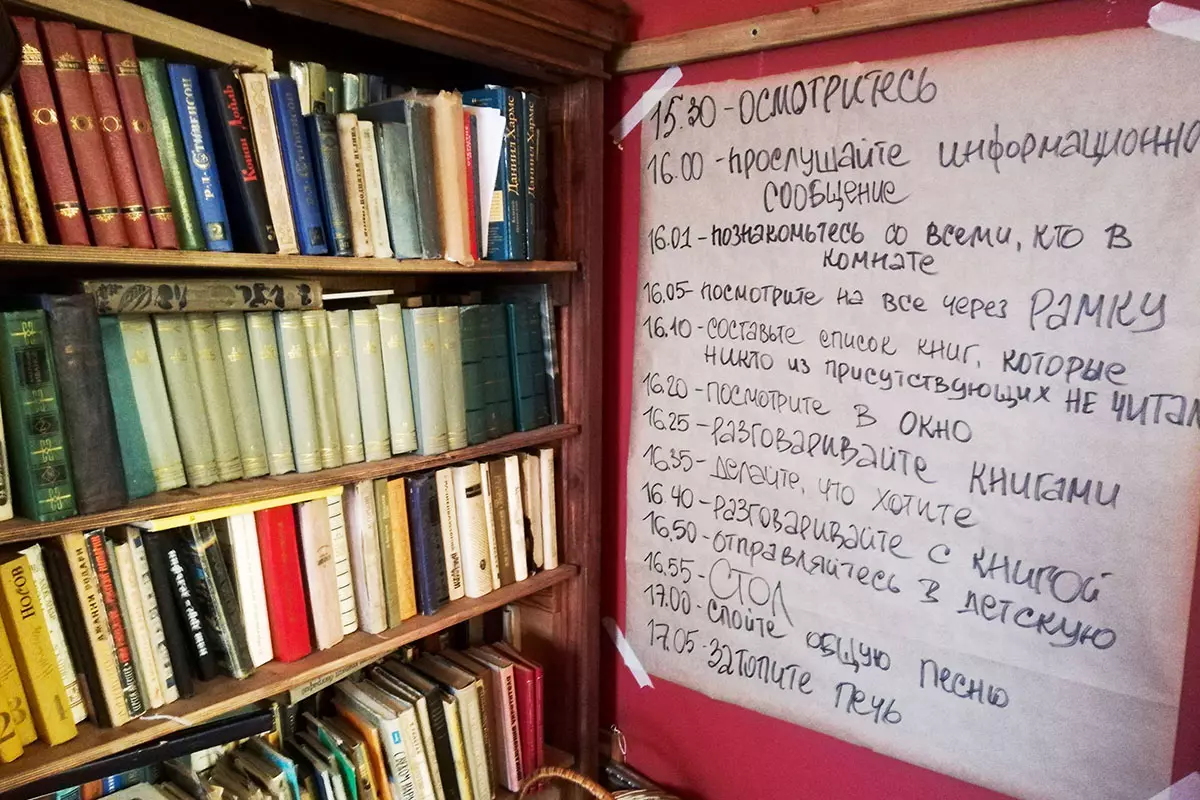 Р.Л. Стивенсон
2
Конан Дойль
Даниил Хармс
Даниил Хармс
НОСОВ
ДЖАННИ РОДАРИ
2
23
15.30 - ОСМОТРИТЕСЬ
16.00 - ПРОСЛУШАЙТЕ ИНФОРМАЦИОННО
СООБЩЕНИЕ
16.01 - ПОЗНАКОМЬТЕСЬ СО ВСЕМИ, КТО В
КОМНАТЕ
16.05 - ПОСМОТРИТЕ НА ВСЕ ЧЕРЕЗ РАМКУ
16.10 - СОСТАВЬТЕ СПИСОК КНИГ, КОТОРЫЕ
НИКТО ИЗ ПРИСУТСТВУЮЩИХ НЕ ЧИТАЛ
16.20 - ПОСМОТРИТЕ В ОКНО
16.25 - РАЗГОВАРИВАЙТЕ КНИГАМИ
16.35 - ДЕЛАЙТЕ, ЧТО ХОТИТЕ
16.40 - РАЗГОВАРИВАЙТЕ С КНИГОЙ
16.50 - ОТПРАВЛЯЙТЕСЬ В ДЕТСКУЮ
16.55 - СТОЛ
17.00 - СПОЙТЕ ОБЩУЮ ПЕСНЮ
17.05 - ЗАТОПИТЕ ПЕЧЬ